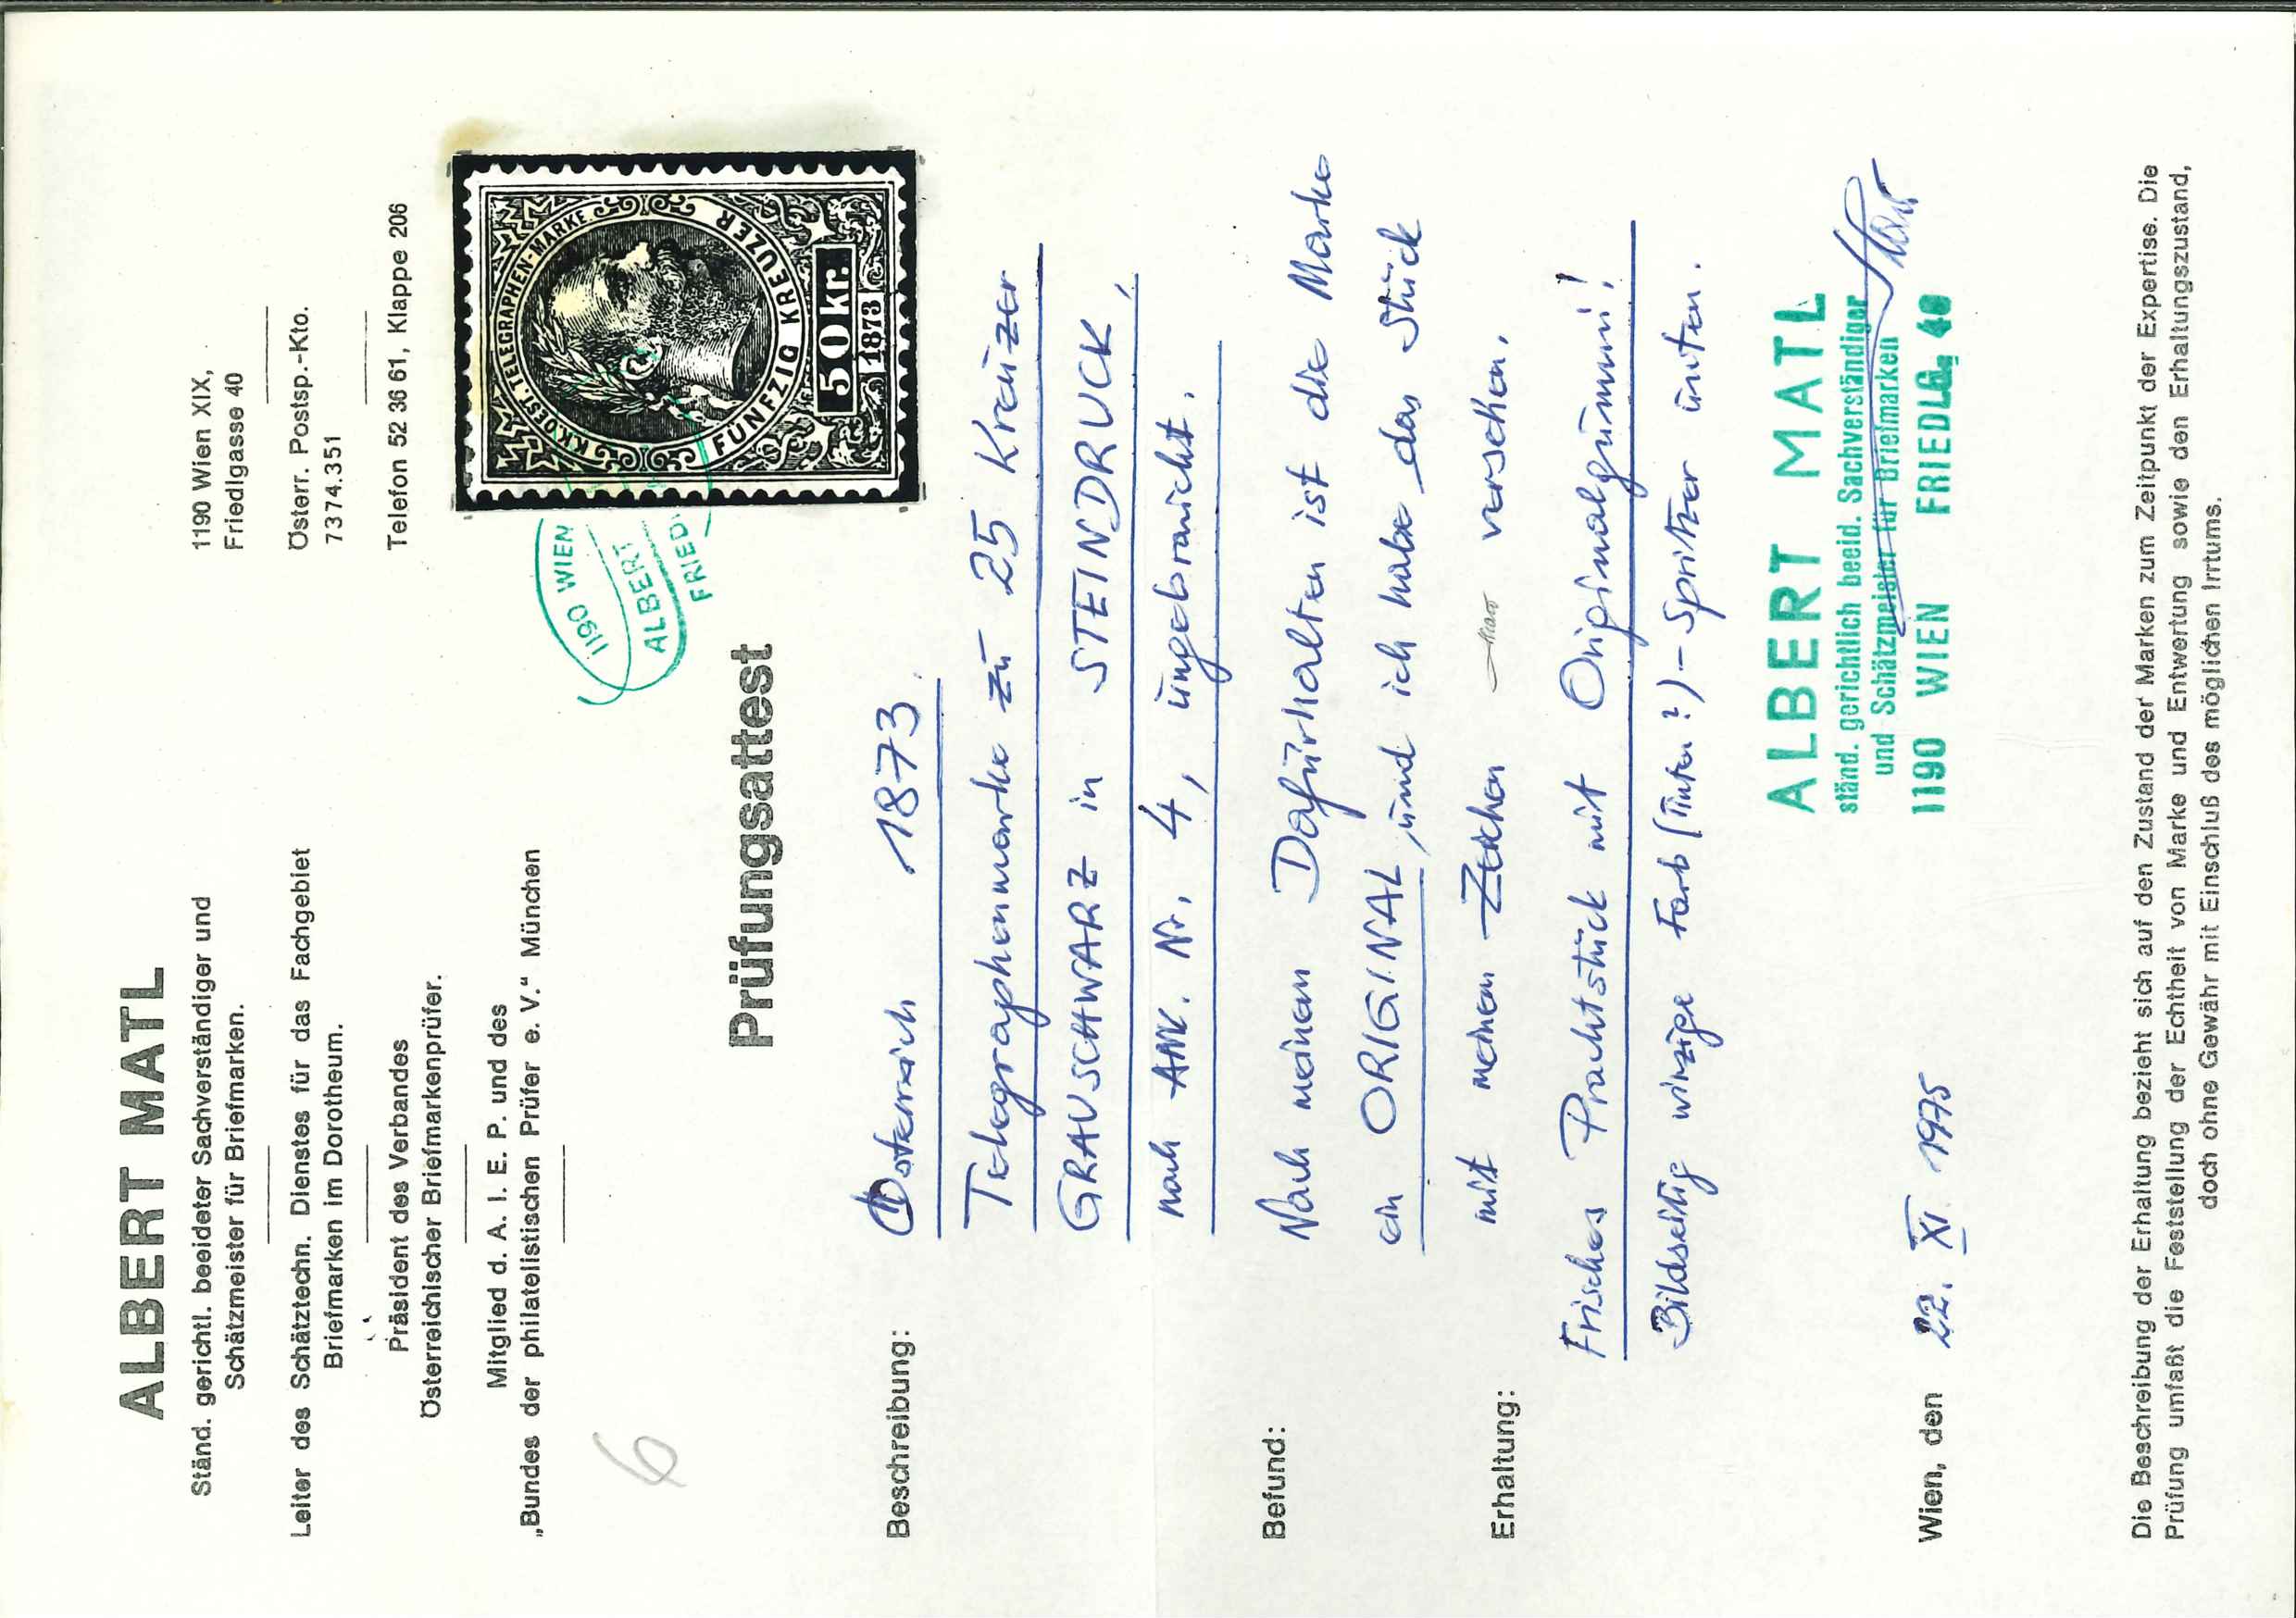 ALBERT MATL
Ständ. gerichtl. beeideter Sachverständiger und
Schätzmeister für Briefmarken.
Leiter des Schätztechn. Dienstes für das Fachgebiet
Briefmarken im Dorotheum.
Präsident des Verbandes
Österreichischer Briefmarkenprüfer.
Mitglied d. A. I. E. P. und des
„Bundes der philatelistischen Prüfer e. V.“ München
1190 Wien XIX,
Friedlgasse 40
Österr. Postsp.-Kto.
7374.351
Telefon 52 36 61, Klappe 206
KK.ÖST. TELEGRAPHEN-MARKE.
FÜNFZIG KREUZER
50 kr.
1873
1190 WIEN
ALBERT
FRIED
6
Prüfungsattest
Beschreibung: Österreich 1873.
Telegraphenmarke zu 25 Kreuzer
GRAUSCHWARZ in STEINDRUCK,
nach ANK. Nr. 4, ungebraucht.
Befund: Nach meinem Dafürhalten ist die Marke
ein ORIGINAL, und ich habe das Stück
mit meinem Zeichen versehen.
Erhaltung:
Frisches Prachtstück mit Originalgummi!
Bildseitig winzige Farb (Tinten?) - Spritzer unten.
ALBERT MATL
ständ. gerichtlich beeid. Sachverständiger
und Schätzmeister für Briefmarken
1190 WIEN FRIEDLG. 40
Wien, den 22. XI 1975
Die Beschreibung der Erhaltung bezieht sich auf den Zustand der Marken zum Zeitpunkt der Expertise. Die
Prüfung umfaßt die Feststellung der Echtheit von Marke und Entwertung sowie den Erhaltungszustand,
doch ohne Gewähr mit Einschluß des möglichen Irrtums.